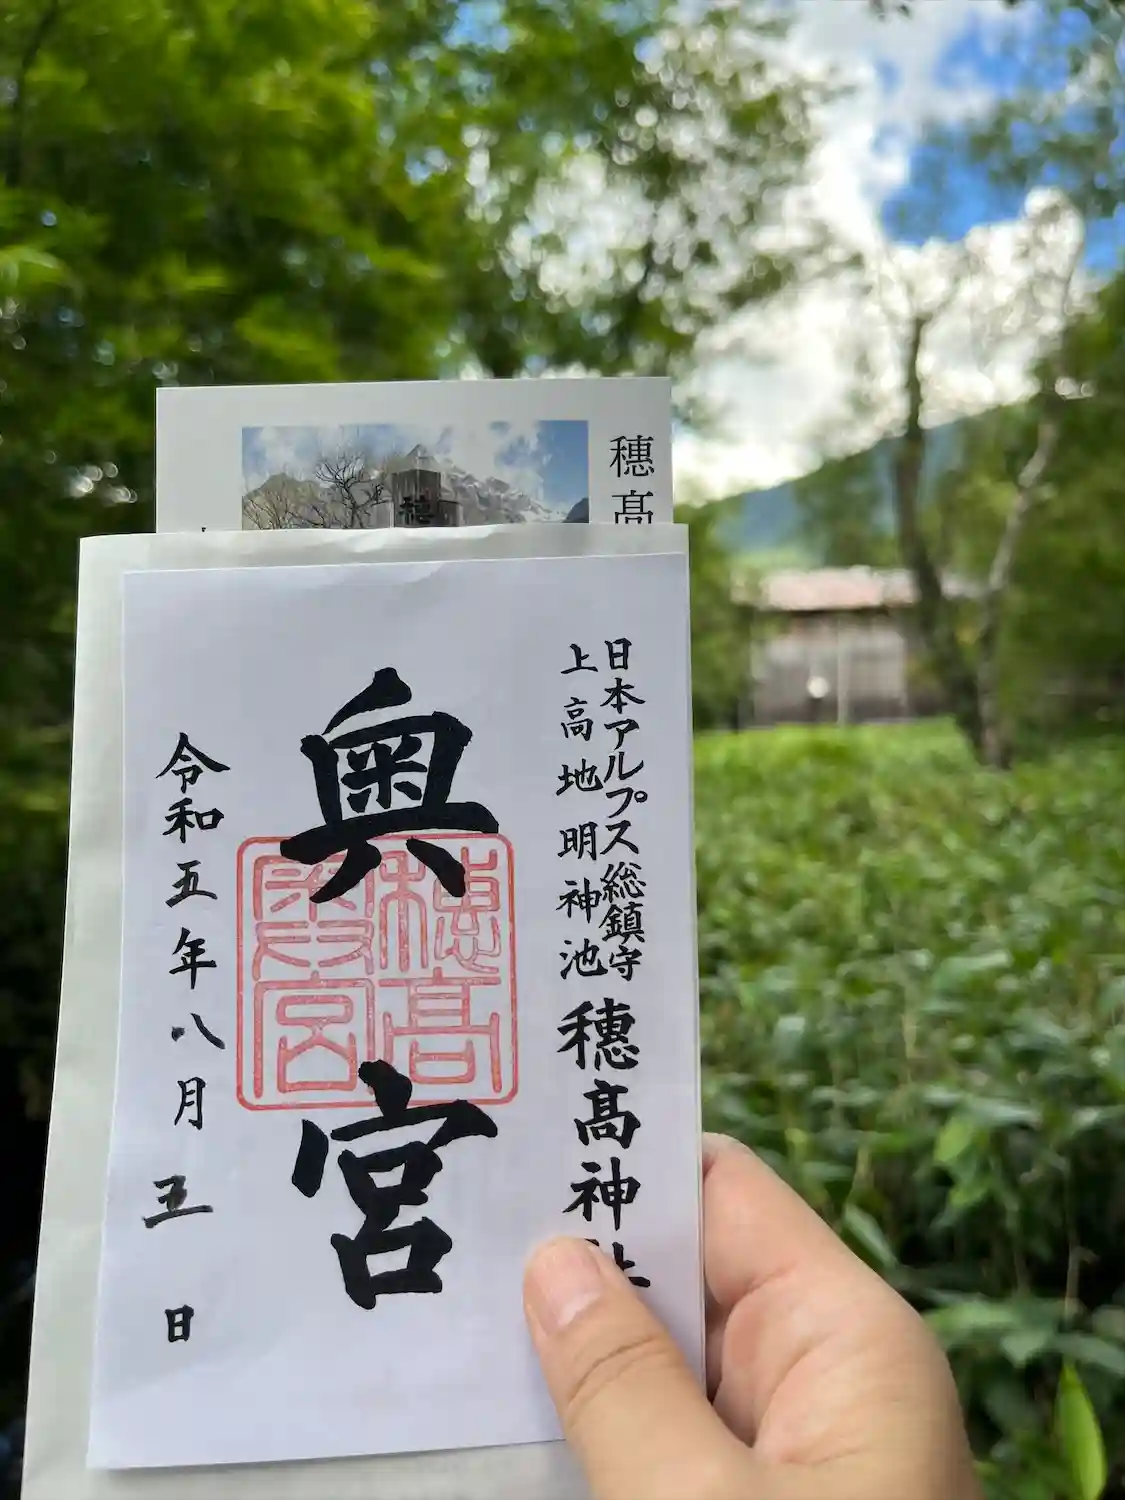 穗髙
穗
日本アルプス総鎮守
上高地明神池
穗髙神社
奥宮
穗髙
奥宮
令和五年八月五日